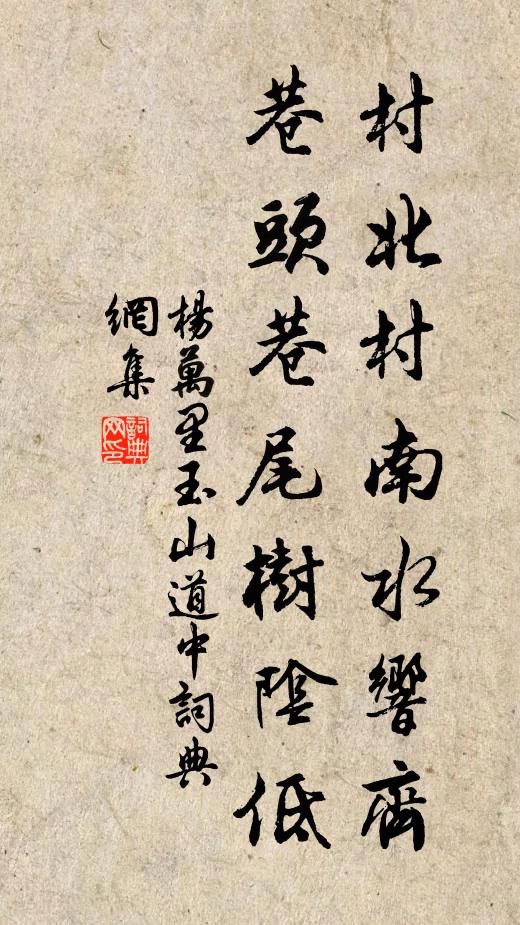 村北村南水響齊
巷頭巷尾樹陰低
楊萬里玉山道中詞典
網集
詞典網印